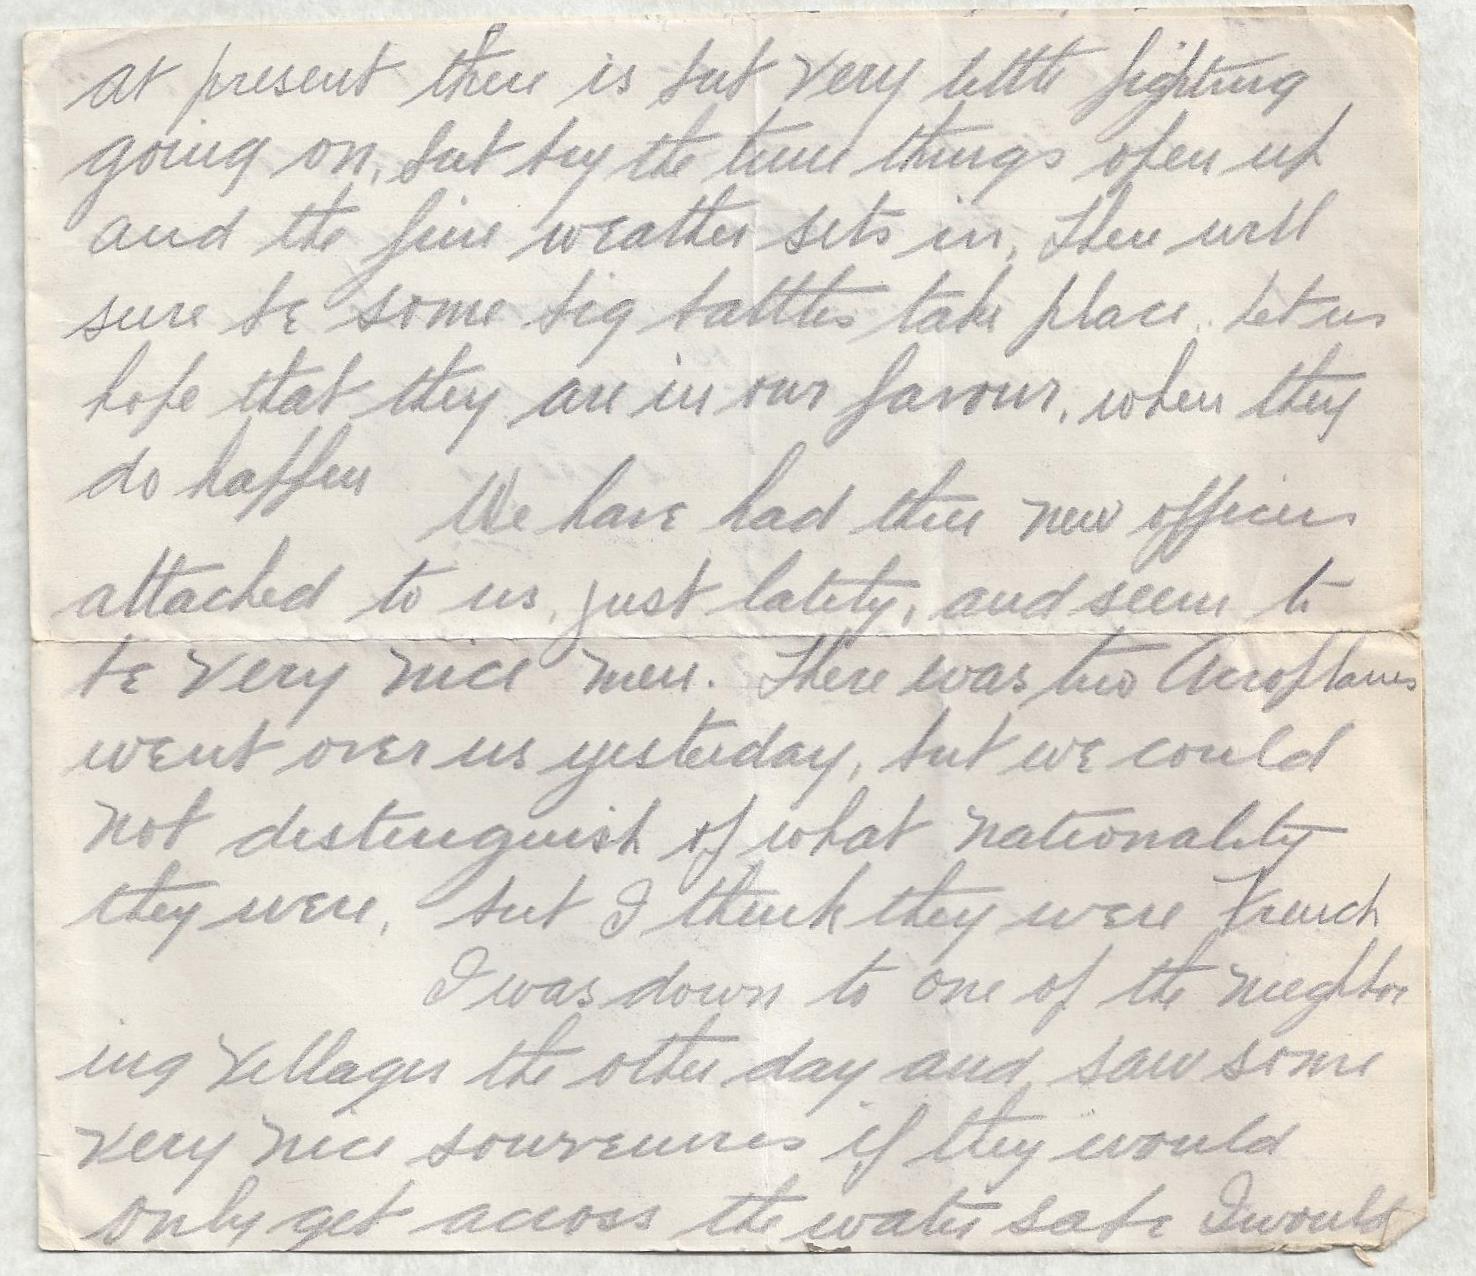 at present there is but very little fighting
going on, but by the time things open up
and the fine weather sets in, there will
sure be some big battles take place. Let us
hope that they are in our favour, when they
do happen
We have had three new officers
attached to us, just lately, and seem to
be very nice men. There was two Aeroplanes
went over us yesterday, but we could
not distinguish of what nationality
they were, but I think they were French
I was down to one of the nieghbor
ing villages the other day and, saw some
very nice sourvenires if they would
only get across the water safe I would